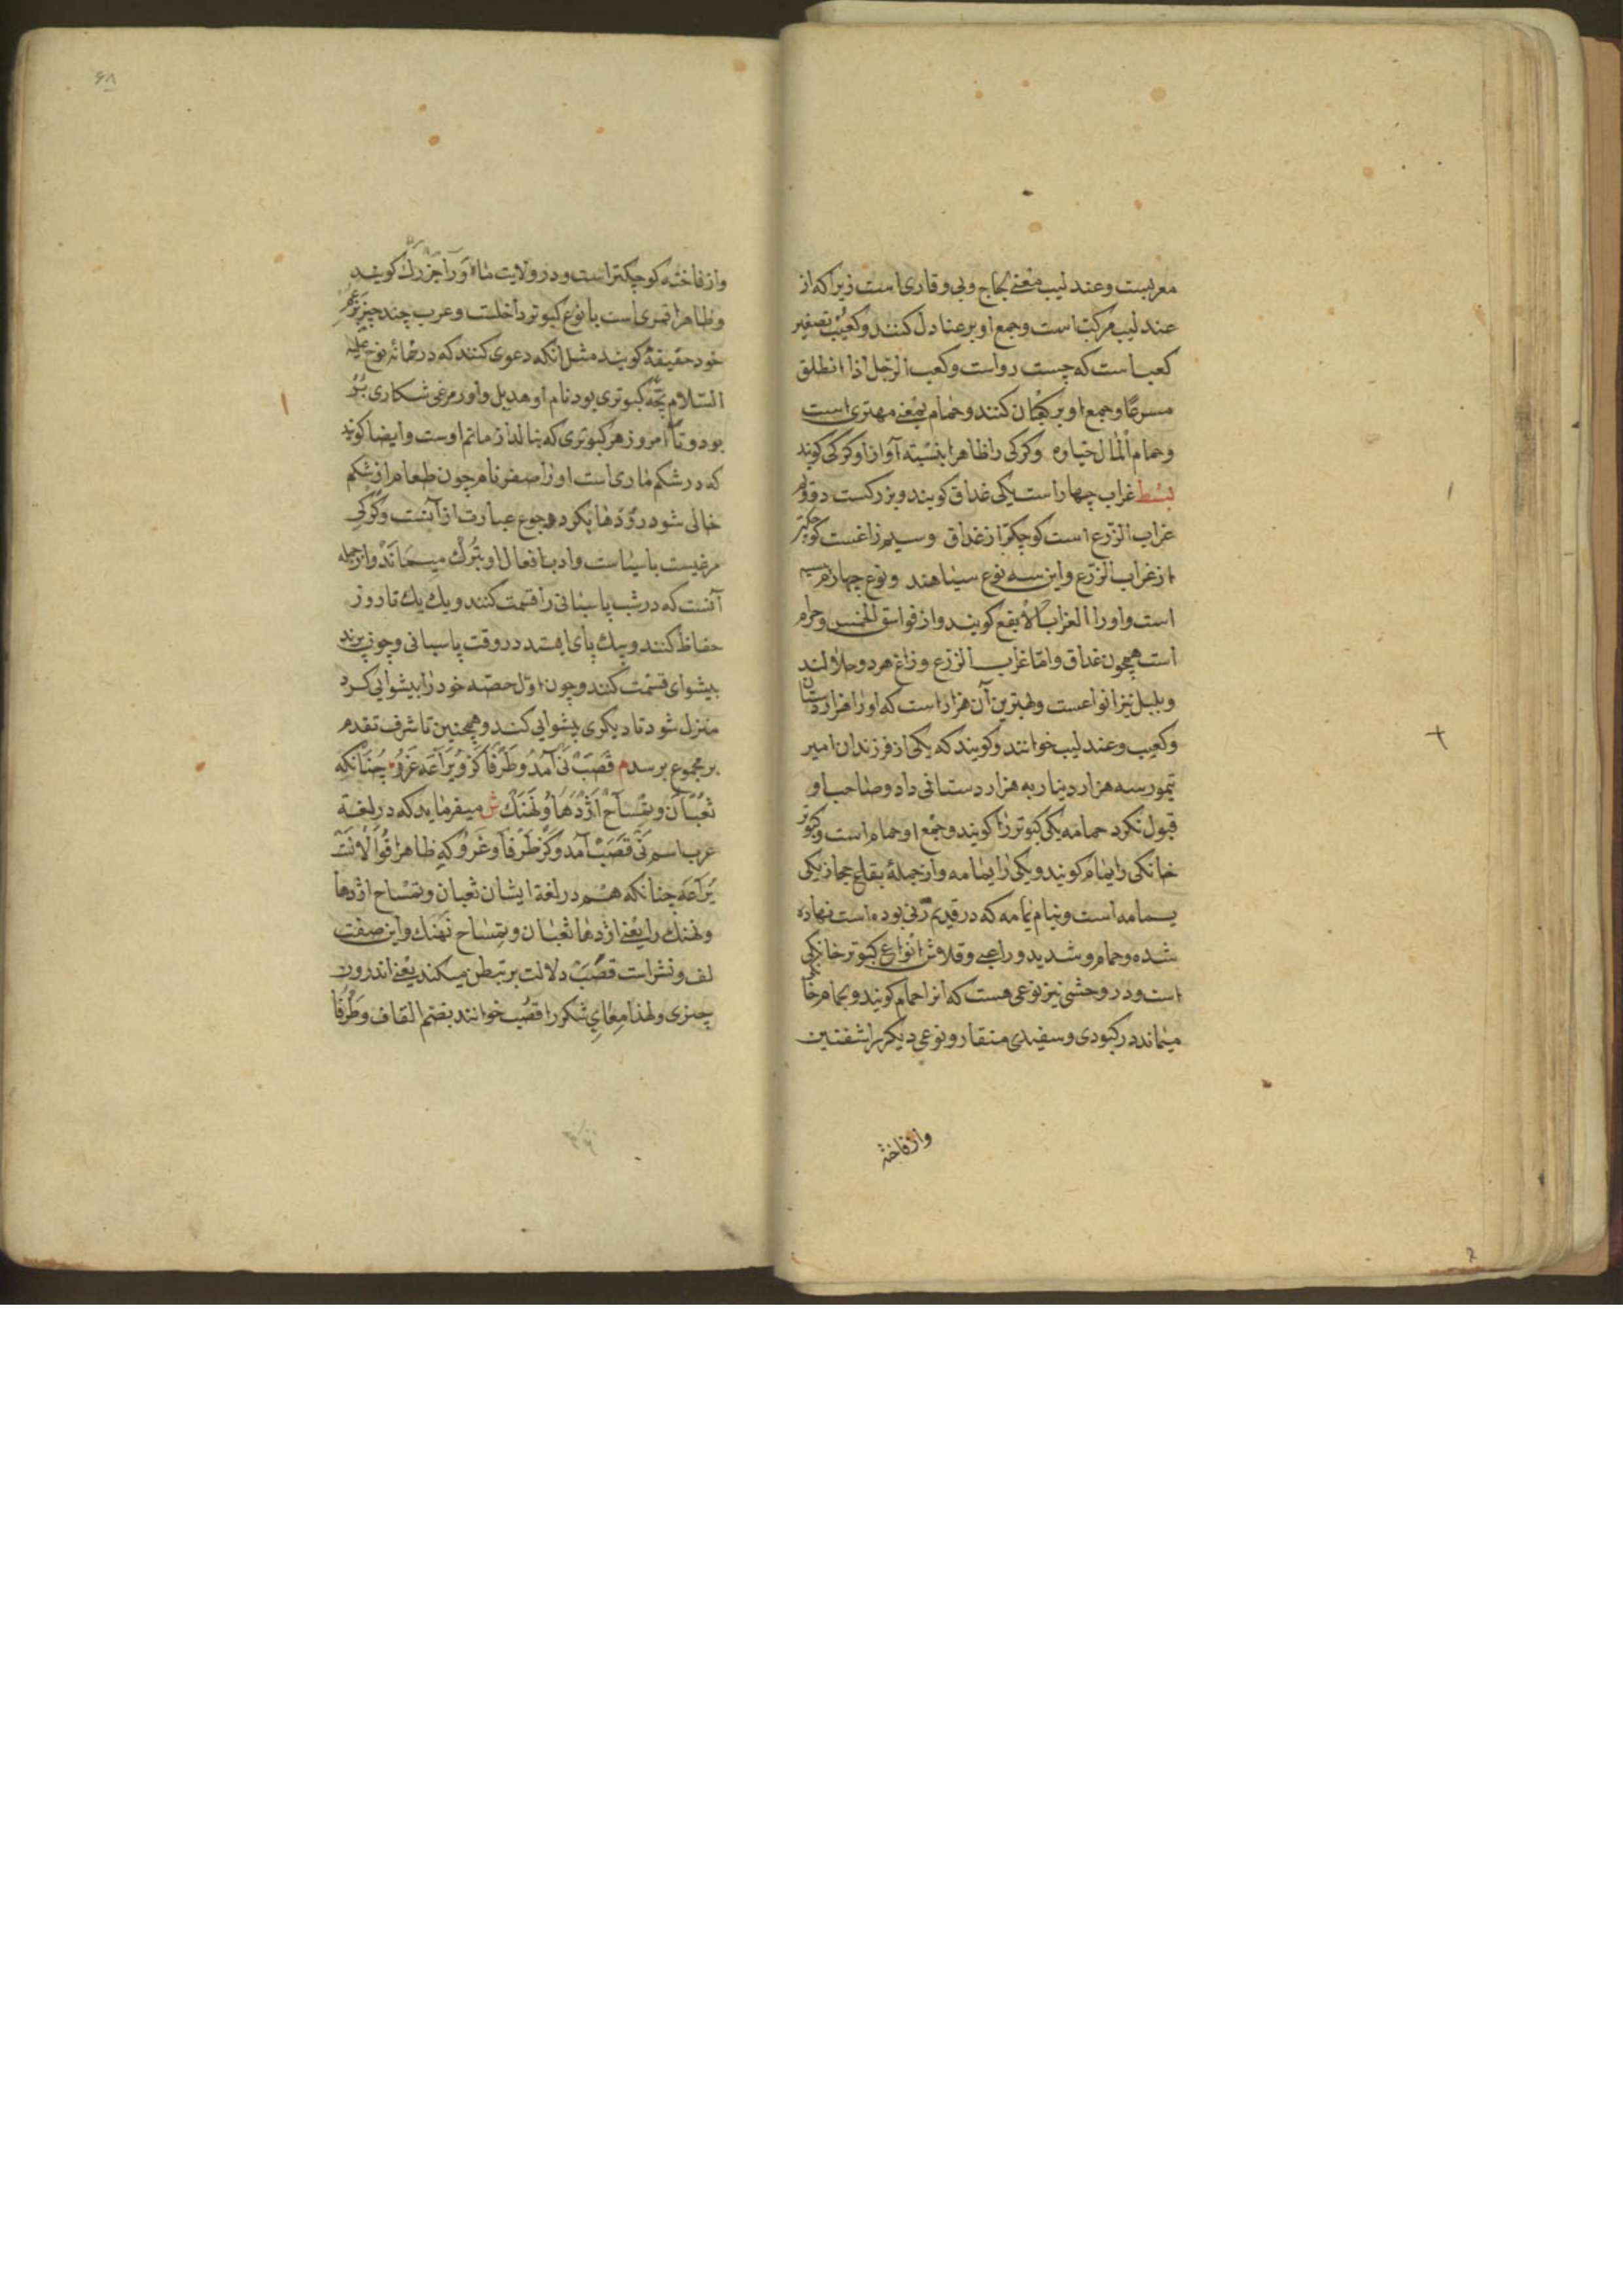 معربست وعندلیب بمعنی لجاج وبی وقاری است زیرا که از
عندلیب مرکبتاست وجمع او بر عنادل کنند وکعیب تصغیر
کعباست که چست رواست وکعب الرجل اذا انطلق
مسرعا وجمع او بر کعبان کنند وحمام بمعنی مهتری است
وحمام المال خیاره وکرکی را ظاهرا بنسبته آواز او کرکی کویند
بسط غراب چهاراست یکی غداق کویند وبزرکست دووم
غراب الزرع است کوچکتر از غداق وسیم زاغست کوچکتر
از غراب الزرع واین سه نوع سیاهند ونوع چهارم
است واورا الغراب الابقع کویند واز فواسق الخمس وحرام
است همچون غداق واما غراب الزرع وزاغ هردو حلالند
وبلبل نیز انواعست وبهترین آن هزاراست که اورا هزاردستان
وکعیب وعندلیب خوانند وکویند که یکی از فرزندان امیر
تیمور سه هزار دینار به هزاردستانی داد وصاحب او
قبول نکرد حمامه یکی کبوتر را کویند وجمع او حمام است وکبوتر
خانکی را یمام کویند ویکی را یمامه واز جمله بقاع حجاز یکی
یمامه است وبنام یمامه که در قدیم زنی بوده است نهاده
شده وحمام وشدید وراعبی وقلاش انواع کبوتر خانکی
است ودر وحشی نیز نوعی هست که انرا حمام کویند وبحمام
میماند در کبودی وسفیدی منقار ونوعی دیکر را شفنین
واز فاخته
۶۸
واز فاخته کوچکتر است ودر ولایت ما او را کویند
وظاهرا قمری است با نوع کبوتر داخلست وعرب چند چیز بزعم
خود حقیقة کویند مثل انکه دعوی کنند که در زمانه نوح علیه
السلام بچه کبوتری بود نام او هدیل واورا مرغی شکاری
بود وتا امروز هر کبوتری که بنالد از ماتم اوست وایضا کویند
که در شکم ماری است اورا صفر نام چون طعام از شکم
خالی شود رودها بکزد وجوع عبارت از آنست وکرکی
مرغیست با سیاست وادب افعال او بترک میماند واز جمله
آنست که در شب پاسبانی را قسمت کنند ویک یک تا روز
حفاظ کنند وبیک پای ایستد در وقت پاسبانی وچون پرند
پیشوای قسمت کنند وچون اول حصه خود را پیشوایی کرد
منزل شود تا دیکری پیشوایی کند وهمچنین تا شرف تقدم
بر مجموع برسد م قصب نی آمد وطرفا کز ویراعه غرو چنانکه
ثعبان وتمساح اژدها ونهنک ش میفرماید که در لغة
عرب اسم نی قصب آمد وکز طرفا وغرو که ظاهرا
یراعه چنانکه هم در لغة ایشان ثعبان وتمساح اژدها
ونهنک را یعنی اژدها ثعبان وتمساح نهنک واین صفت
لف ونشر است قصب دلالت بر تبطن میکند یعنی اندرون
چیزی ولهذا معای شکر را قصب خوانند بضم القاف وطرفا